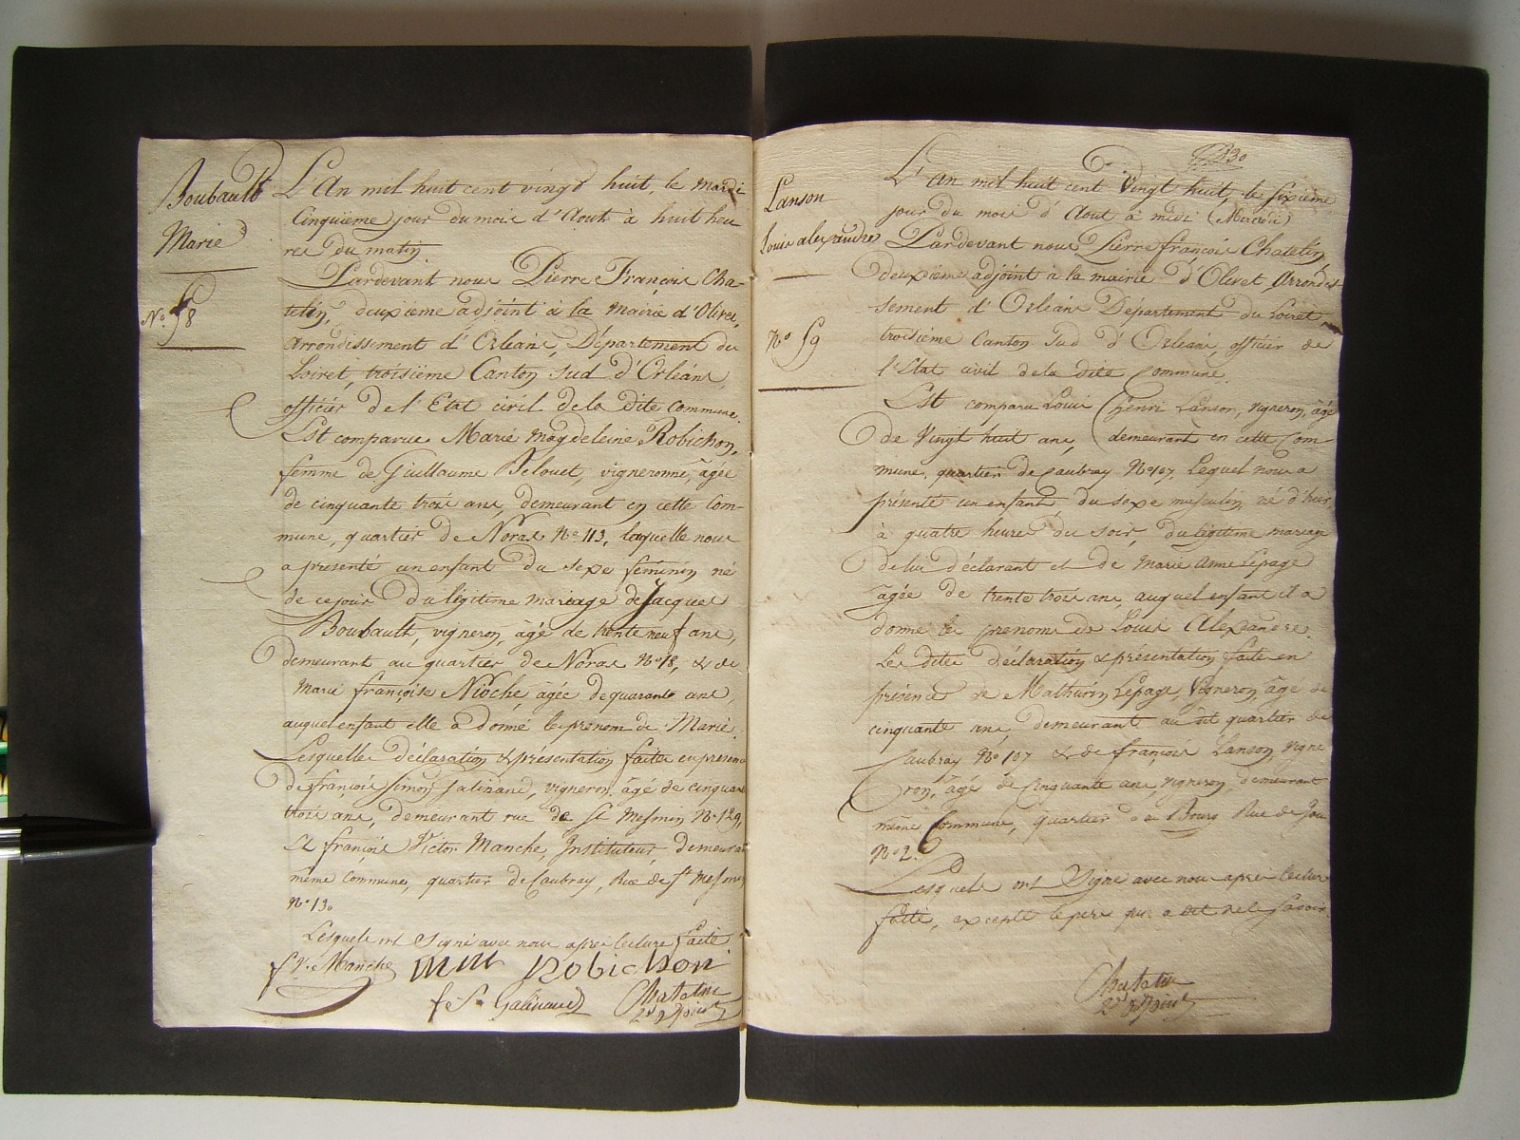 Boubault
Marie
No. 58
L'An mil huit cent vingt huit, le mardi
Cinquieme jour du mois d'Aout à huit heu
res du matin.
Pardevant nous Pierre François Cha-
telin, deuxieme adjoint à la Mairie d'Olivet,
arrondissement d'Orléans, Département du
Loiret, troisième Canton Sud d'Orléans,
officier de l'Etat civil de la dite commune.
Est comparue Marie Magdeleine Robichon,
femme de Guillaume Belouet, vigneronne, âgée
de cinquante trois ans, demeurant en cette Com-
mune, quartier de Noras No. 113, laquelle nous
a presenté un enfant du sexe feminin né
de ce jour du légitime mariage de Jacques
Boubault, vigneron, âgé de trente neuf ans,
demeurant au quartier de Noras No. 18, & de
Marie françoise Nioche, âgée de quarante ans,
auquel enfant elle a donné le prenom de Marie.
Lesquelles déclaration & présentation faites en presence
de françois Simon galinand, vigneron, âgé de cinquante
trois ans, demeurant rue de St Mesmin No. 129,
& françois Victor Manche, Instituteur, demeurant
même Commune, quartier de Caubray, Rue de St Mesmin
No. 13.
Lesquels ont Signé avec nous après lecture faite
f V. Manche mm Robichon
f S. Galinand Chatelin
2d adjoint
130
Lanson
Louis alexandre
No 59
L'An mil huit cent Vingt huit, le sixieme
jour du mois d'Aout à midi (Mercredi)
Pardevant nous Pierre françois Chatelin,
deuxieme adjoint à la mairie d'Olivet, Arrondis-
sement d'Orléans Département du Loiret
troisième Canton Sud d'Orléans, officier de
l'Etat civil de la dite Commune.
Est comparu Louis henri Lanson, vigneron, âgé
de Vingt huit ans, demeurant en cette Com-
mune, quartier de Caubray No. 107, Lequel nous a
présenté un enfant du sexe masculin, né d'hier
à quatre heures du soir, du légitime mariage
de lui déclarant et de Marie Anne Lepage
âgée de trente trois ans, auquel enfant il a
donné les prenoms de Louis Alexandre.
Les dites déclaration & présentation faites en
présence de Mathurin Lepage, Vigneron, âgé de
cinquante ans, demeurant au dit quartier de
Caubray No. 107 & de françois Lanson, vigne
ron, âgé de Cinquante ans, vigneron, demeurant
même Commune, quartier du Bourg Rue de
No. 2.
Lesquels ont Signé avec nous apres lecture
faite, excepté le pere qui a dit ne le savoir
Chatelin
2d adjoint